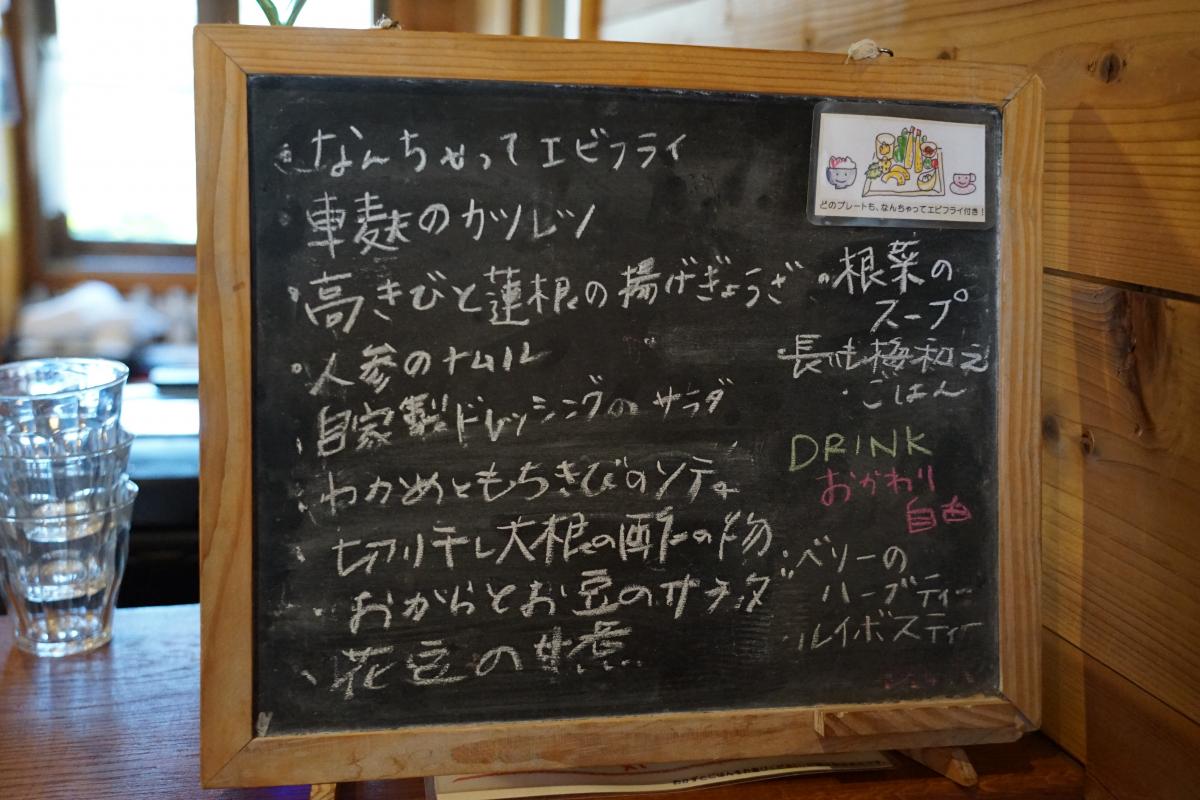 なんちゃってエビフライ
車麩のカツレツ
高きびと蓮根の揚げぎょうざ
人参のナムル
自家製ドレッシングのサラダ
わかめともちきびのソテー
切り干し大根の酢の物
おからとお豆のサラダ
花豆の甘煮
どのプレートも、なんちゃってエビフライ付き!
根菜の
スープ
長いも梅和え
ごはん
DRINK
おかわり
自由
ベリーの
ハーブティー
ルイボスティー